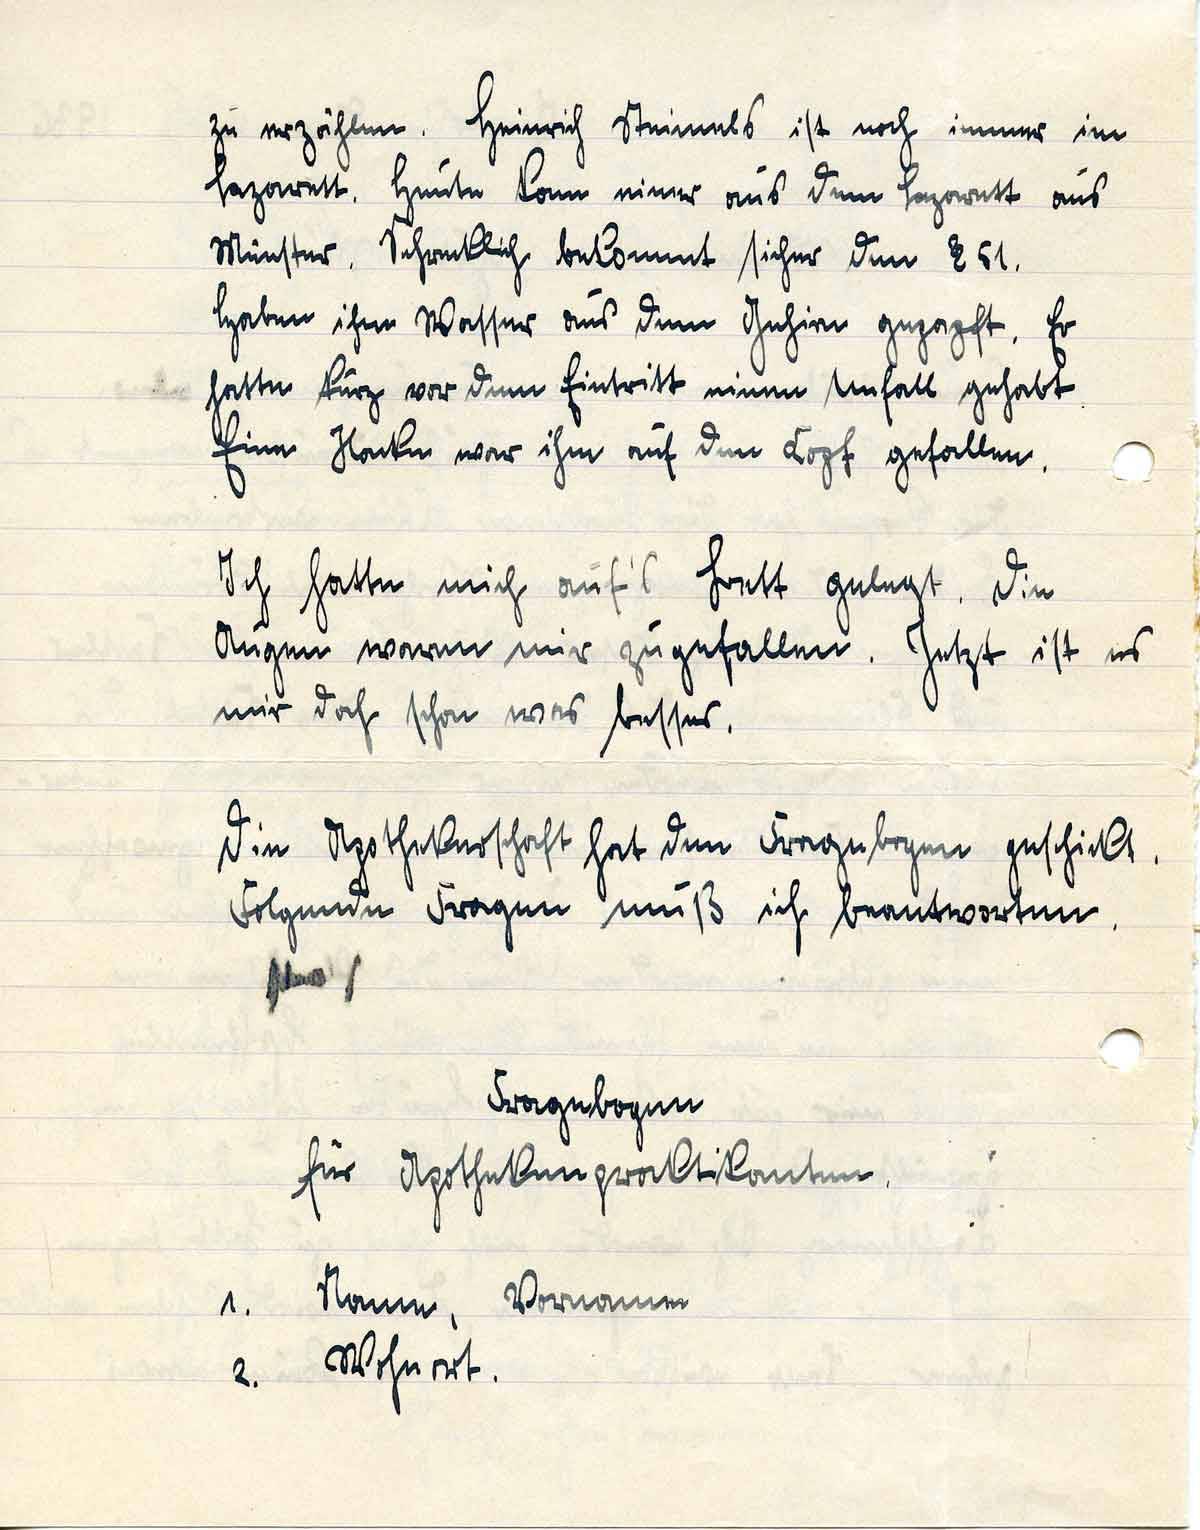 zu erzählen. Heinrich Steinels ist noch immer im
Lazarett. Heute kam einer aus dem Lazarett aus
Münster. Schrecklich bekommt sicher den § 51.
Haben ihm Wasser aus dem Gehirn gezapft. Er
hatte kurz vor dem Eintritt einen Unfall gehabt
Eine Hacke war ihm auf den Kopf gefallen.
Ich hatte mich auf's Brett gelegt. Die
Augen waren mir zugefallen. Jetzt ist es
mir doch schon was besser.
Die Apothekerschaft hat den Fragebogen geschickt.
Folgende Fragen muß ich beantworten.
Fragebogen
für Apothekenpraktikanten.
1. Name, Vorname
2. Wohnort.